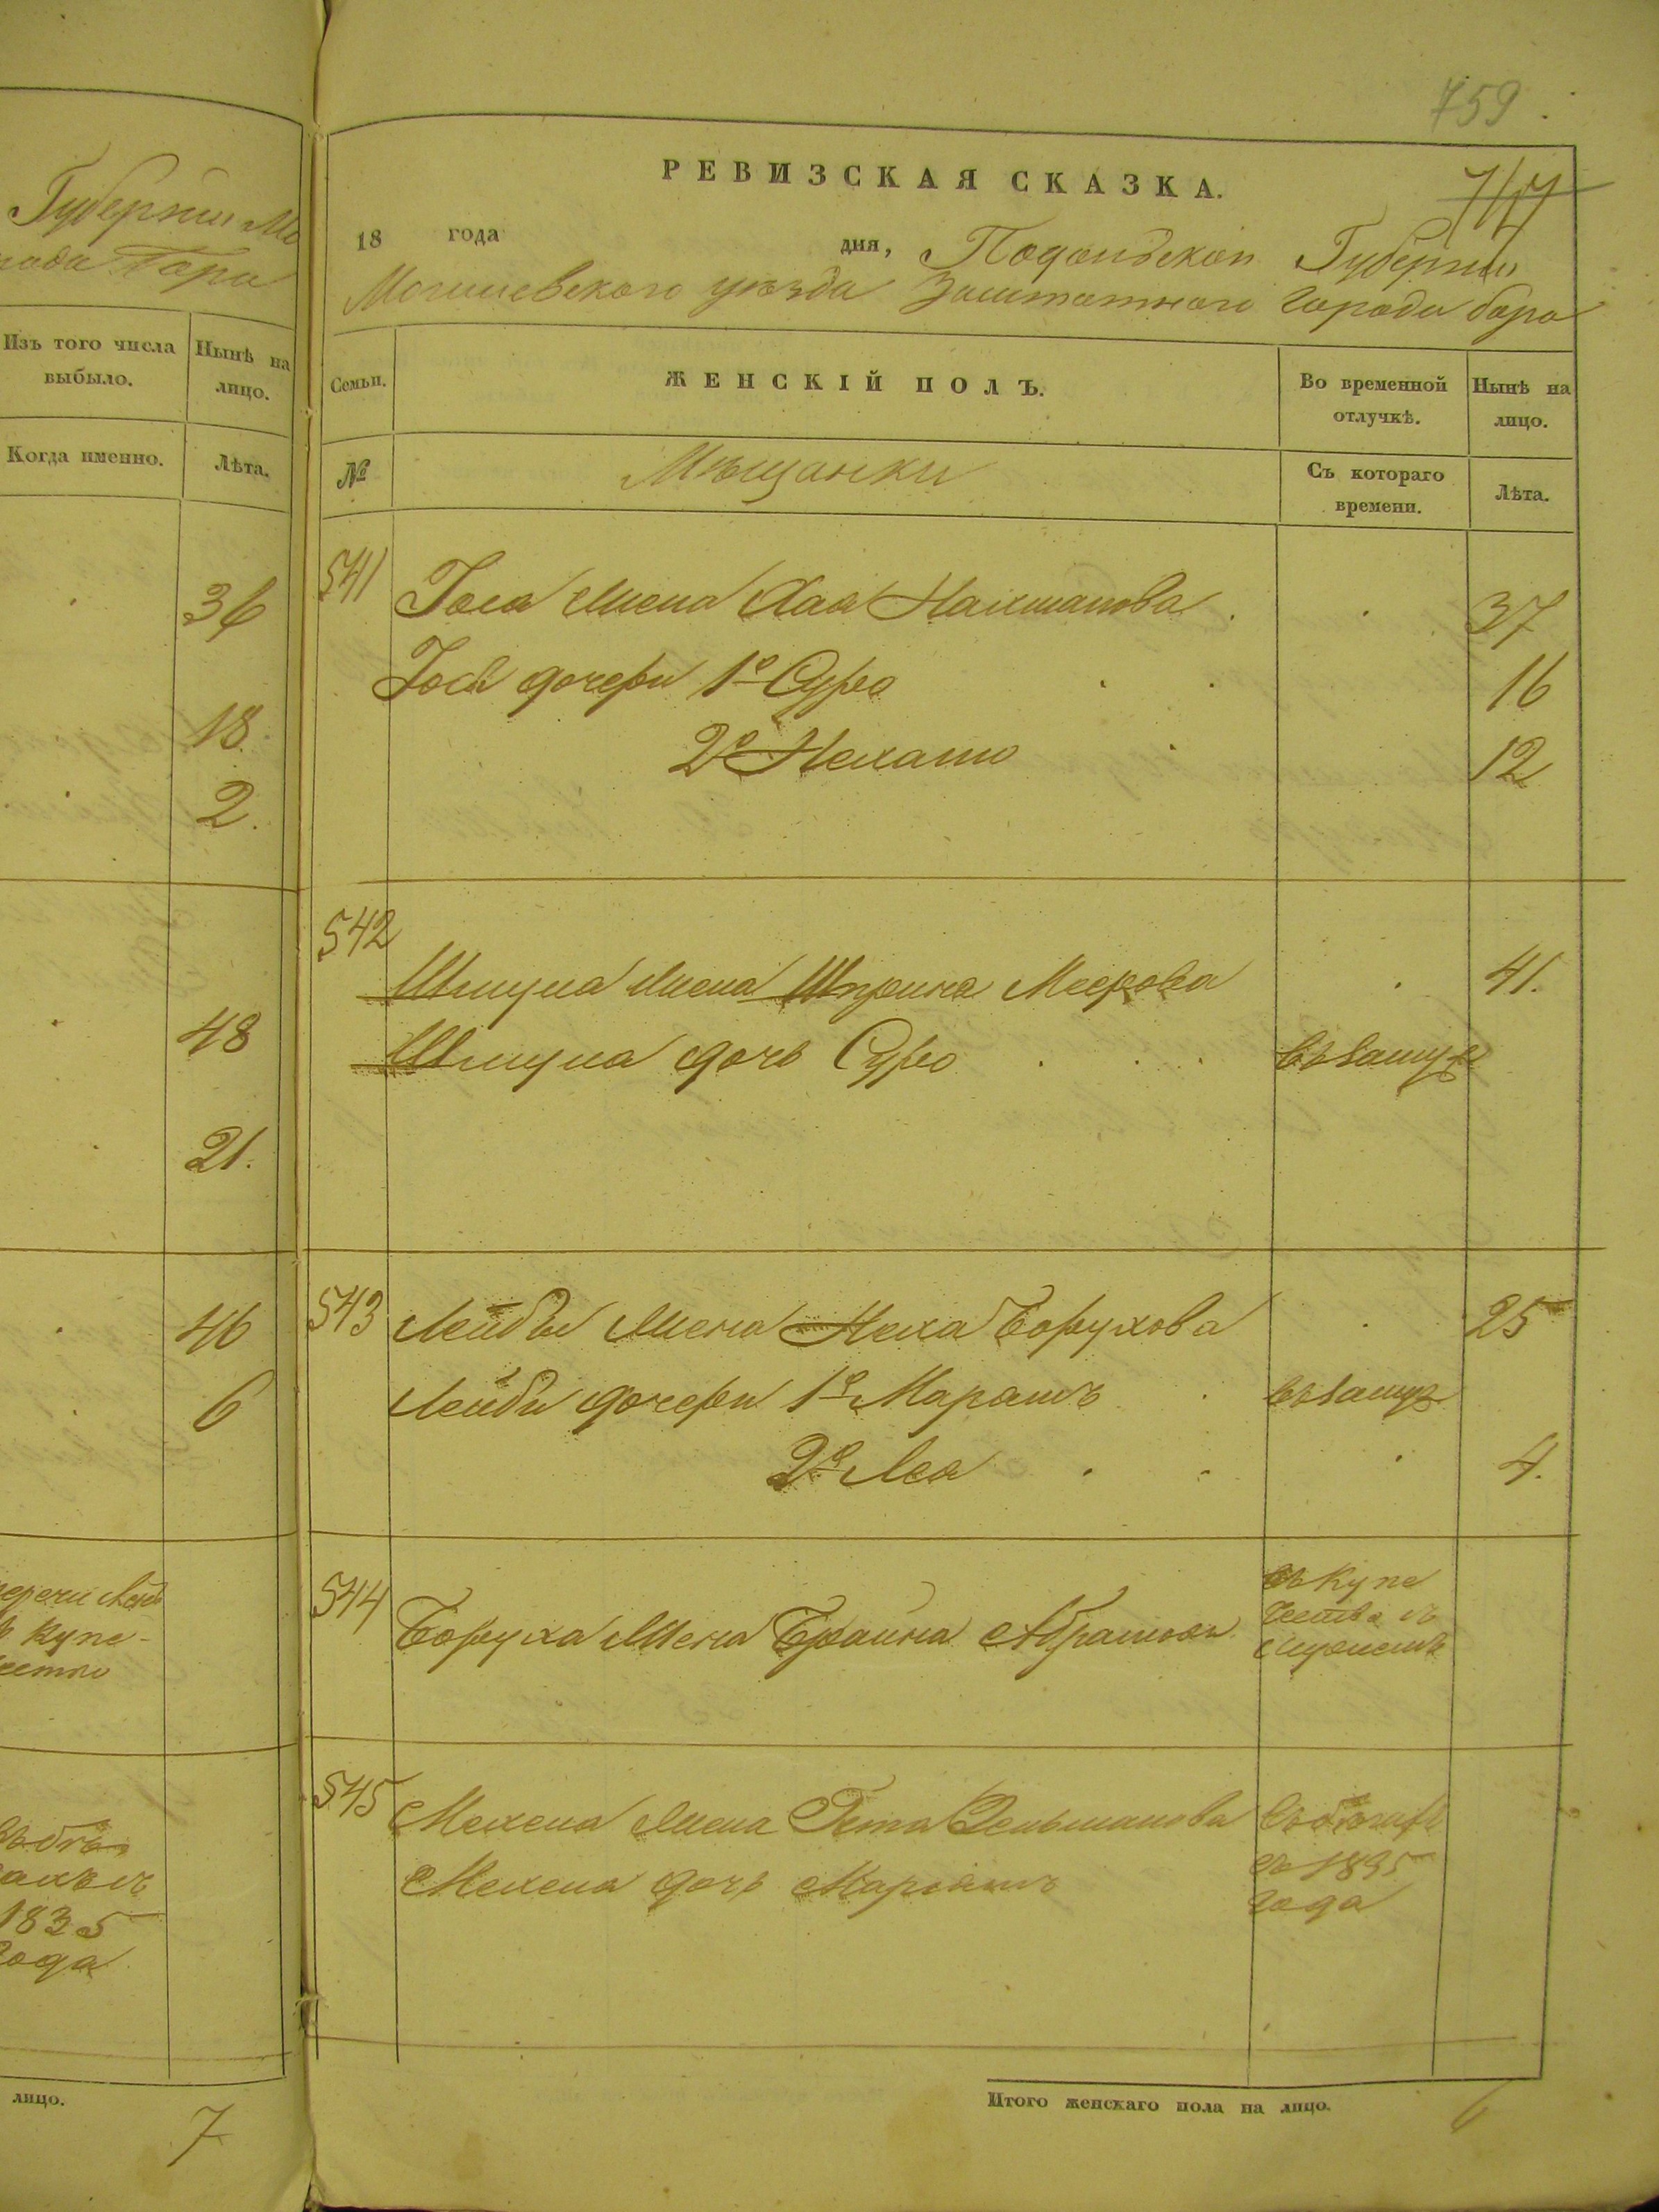 Губернии Мо
рода Бара
Изъ того числа выбыло.
Нынѣ на лицо.
Когда именно.
Лѣта.
36
18
2.
48
21.
46
6
купе-
1835
года
лицо.
7
759
РЕВИЗСКАЯ СКАЗКА.
717
18 года дня, Подольской Губернии
Могилевского уезда Заштатного города бара
Семьи.
ЖЕНСКІЙ ПОЛЪ.
Во временной отлучкѣ.
Нынѣ на лицо.
№
Мѣщанки
Съ котораго времени.
Лѣта.
541
жена Хая 37
дочери 1е Сура 16
2е Нехама 12
542
Шмуля жена Шприна Меерова 41.
Шмуля дочь Сура въ замуж
543
Лейбы жена Неха Борухова 25
Лейби дочери 1е Мариамъ въ замуж
2е Лея 4.
544
Боруха жена Брайна Абрамова
въ купе
чество съ
мужемъ
545
Мехеля жена Гета Зельманова
Мехеля дочь Мариамъ
съ 1835
года
Итого женскаго пола на лицо.
6